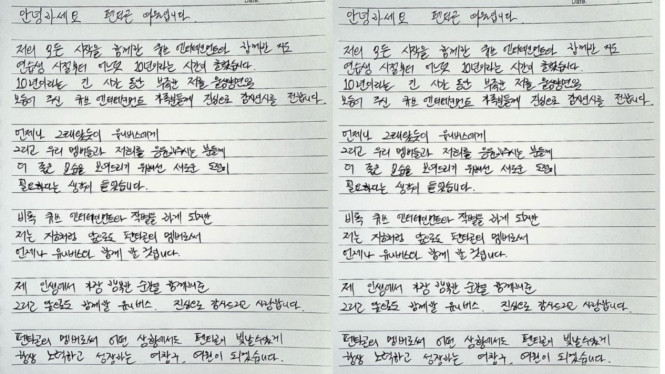 안녕하세요 펜타곤 여원입니다.
저의 모든 시작을 함께한 큐브 엔터테인먼트와 함께한 지도
연습생 시절부터 어느덧 10년이라는 시간이 흘렀습니다.
10년이라는 긴 시간 동안 부족한 저를 물심양면으로
도움이 주신 큐브 엔터테인먼트 가족분들께 진심으로 감사인사를 전합니다.
언제나 그래왔듯이 유니버스에게
그리고 우리 멤버들과 저희를 응원해주시는 분들께
더 좋은 모습을 보여드리기 위해선 새로운 도전이
필요하다는 생각이 들었습니다.
비록 큐브 엔터테인먼트와 작별을 하게 되지만
저는 지금처럼 앞으로도 펜타곤의 멤버로써
언제나 유니버스와 함께 할 것입니다.
제 인생에서 가장 행복한 순간을 함께해준
그리고 앞으로도 함께할 유니버스. 진심으로 감사드리고 사랑합니다.
펜타곤의 멤버로써 어떤 상황에서도 펜타곤이 빛날수있게
항상 노력하고 성장하는 여창구, 여원이 되겠습니다.
안녕하세요 펜타곤 여원입니다.
저의 모든 시작을 함께한 큐브 엔터테인먼트와 함께한 지도
연습생 시절부터 어느덧 10년이라는 시간이 흘렀습니다.
10년이라는 긴 시간 동안 부족한 저를 물심양면으로
도움이 주신 큐브 엔터테인먼트 가족분들께 진심으로 감사인사를 전합니다.
언제나 그래왔듯이 유니버스에게
그리고 우리 멤버들과 저희를 응원해주시는 분들께
더 좋은 모습을 보여드리기 위해선 새로운 도전이
필요하다는 생각이 들었습니다.
비록 큐브 엔터테인먼트와 작별을 하게 되지만
저는 지금처럼 앞으로도 펜타곤의 멤버로써
언제나 유니버스와 함께 할 것입니다.
제 인생에서 가장 행복한 순간을 함께해준
그리고 앞으로도 함께할 유니버스. 진심으로 감사드리고 사랑합니다.
펜타곤의 멤버로써 어떤 상황에서도 펜타곤이 빛날수있게
항상 노력하고 성장하는 여창구, 여원이 되겠습니다.